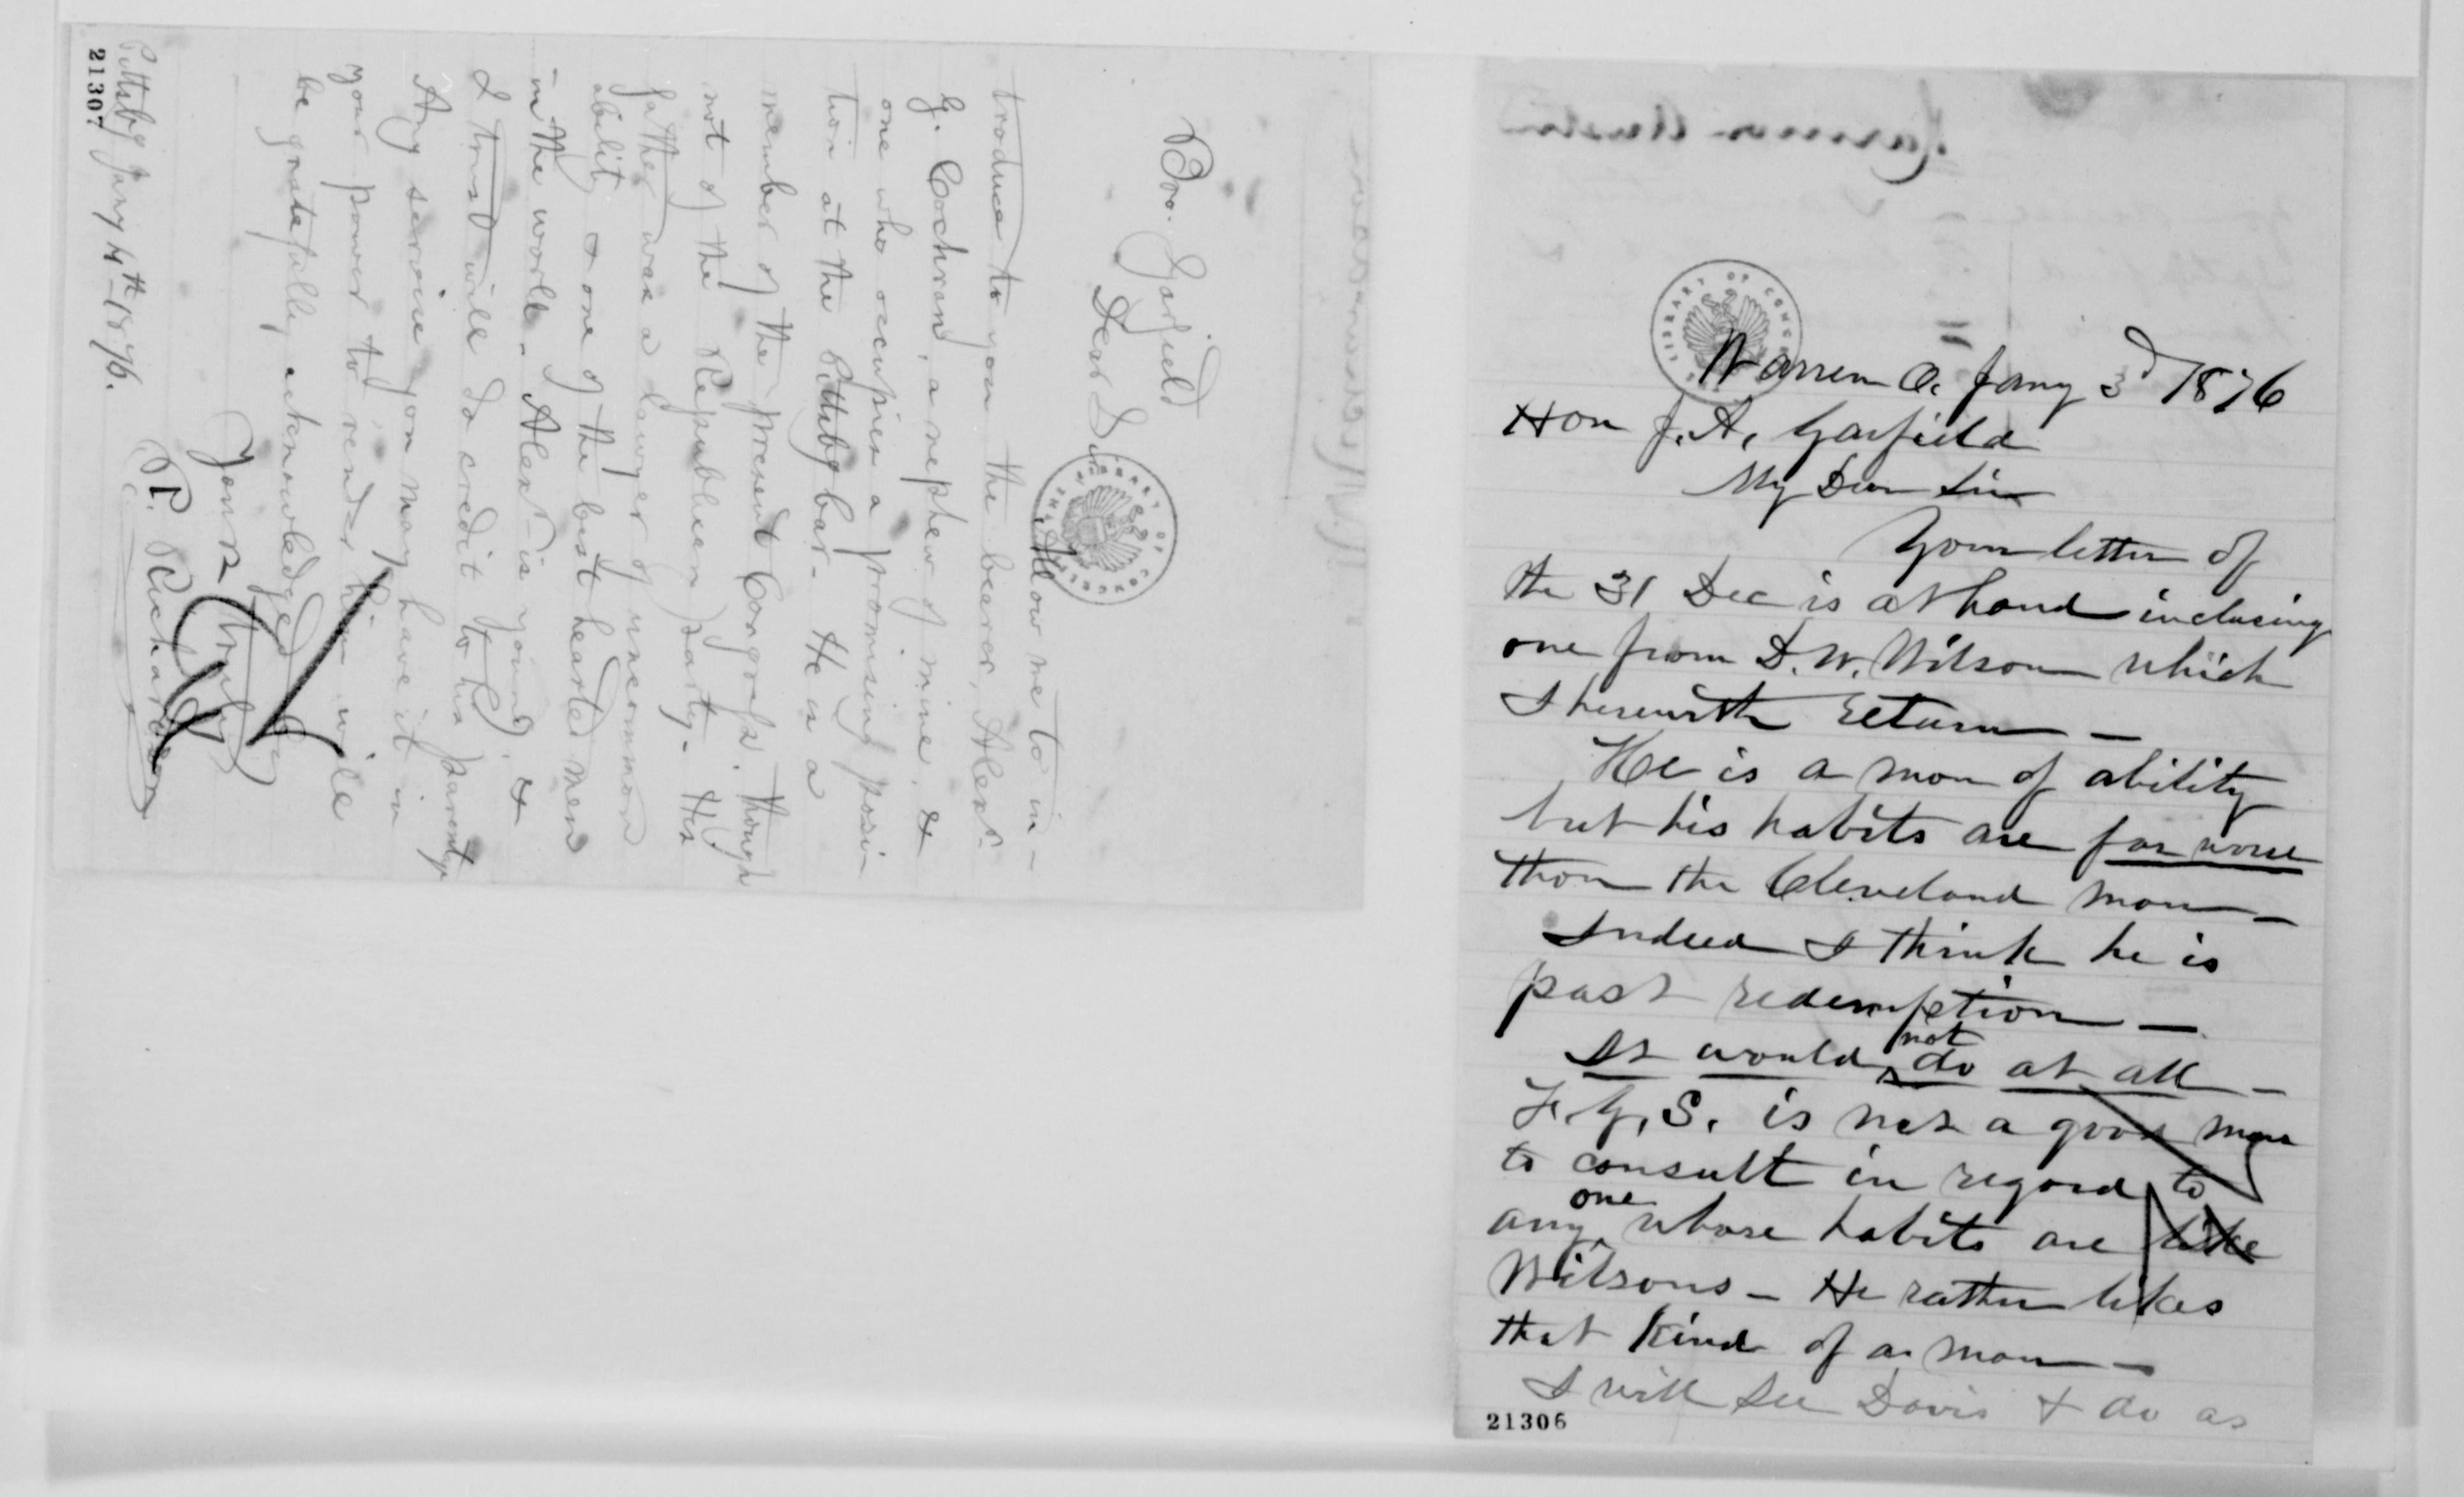 Bro. Garfield
Dear Sir
Allow me to in-
troduce to you the bearer, Alexr.
G. Cochran, a nephew of mine, &
one who occupies a promising posi-
tion at the Pittsbg bar. He is a
member of the present Congress. though
not of the Republican party. His
father was a lawyer of uncommon
ability & one of the best hearted men
in the world. Alexr is young, &
I trust will do credit to his parentage
Any service you may have it in
your power to render him will
be gratefully acknowledged by
Yours truly
R. Richardson
Pittsbg Jany 4th 1876.
21307
LIBRARY OF CONGRESS
Warren O. Jany 3d 1876
Hon J. A. Garfield
My Dear Sir
Your letter of
the 31 Dec is at hand inclosing
one from D. W. Wilson which
I herewith return —
He is a man of ability
but his habits are far worse
than the Cleveland man —
Indeed I think he is
past redemption —
It would not do at all —
F. G. S. is not a good man
to consult in regard to
any one whose habits are like
Wilsons — He rather likes
that kind of a man —
I will see Davis & do as
21306
LIBRARY OF CONGRESS